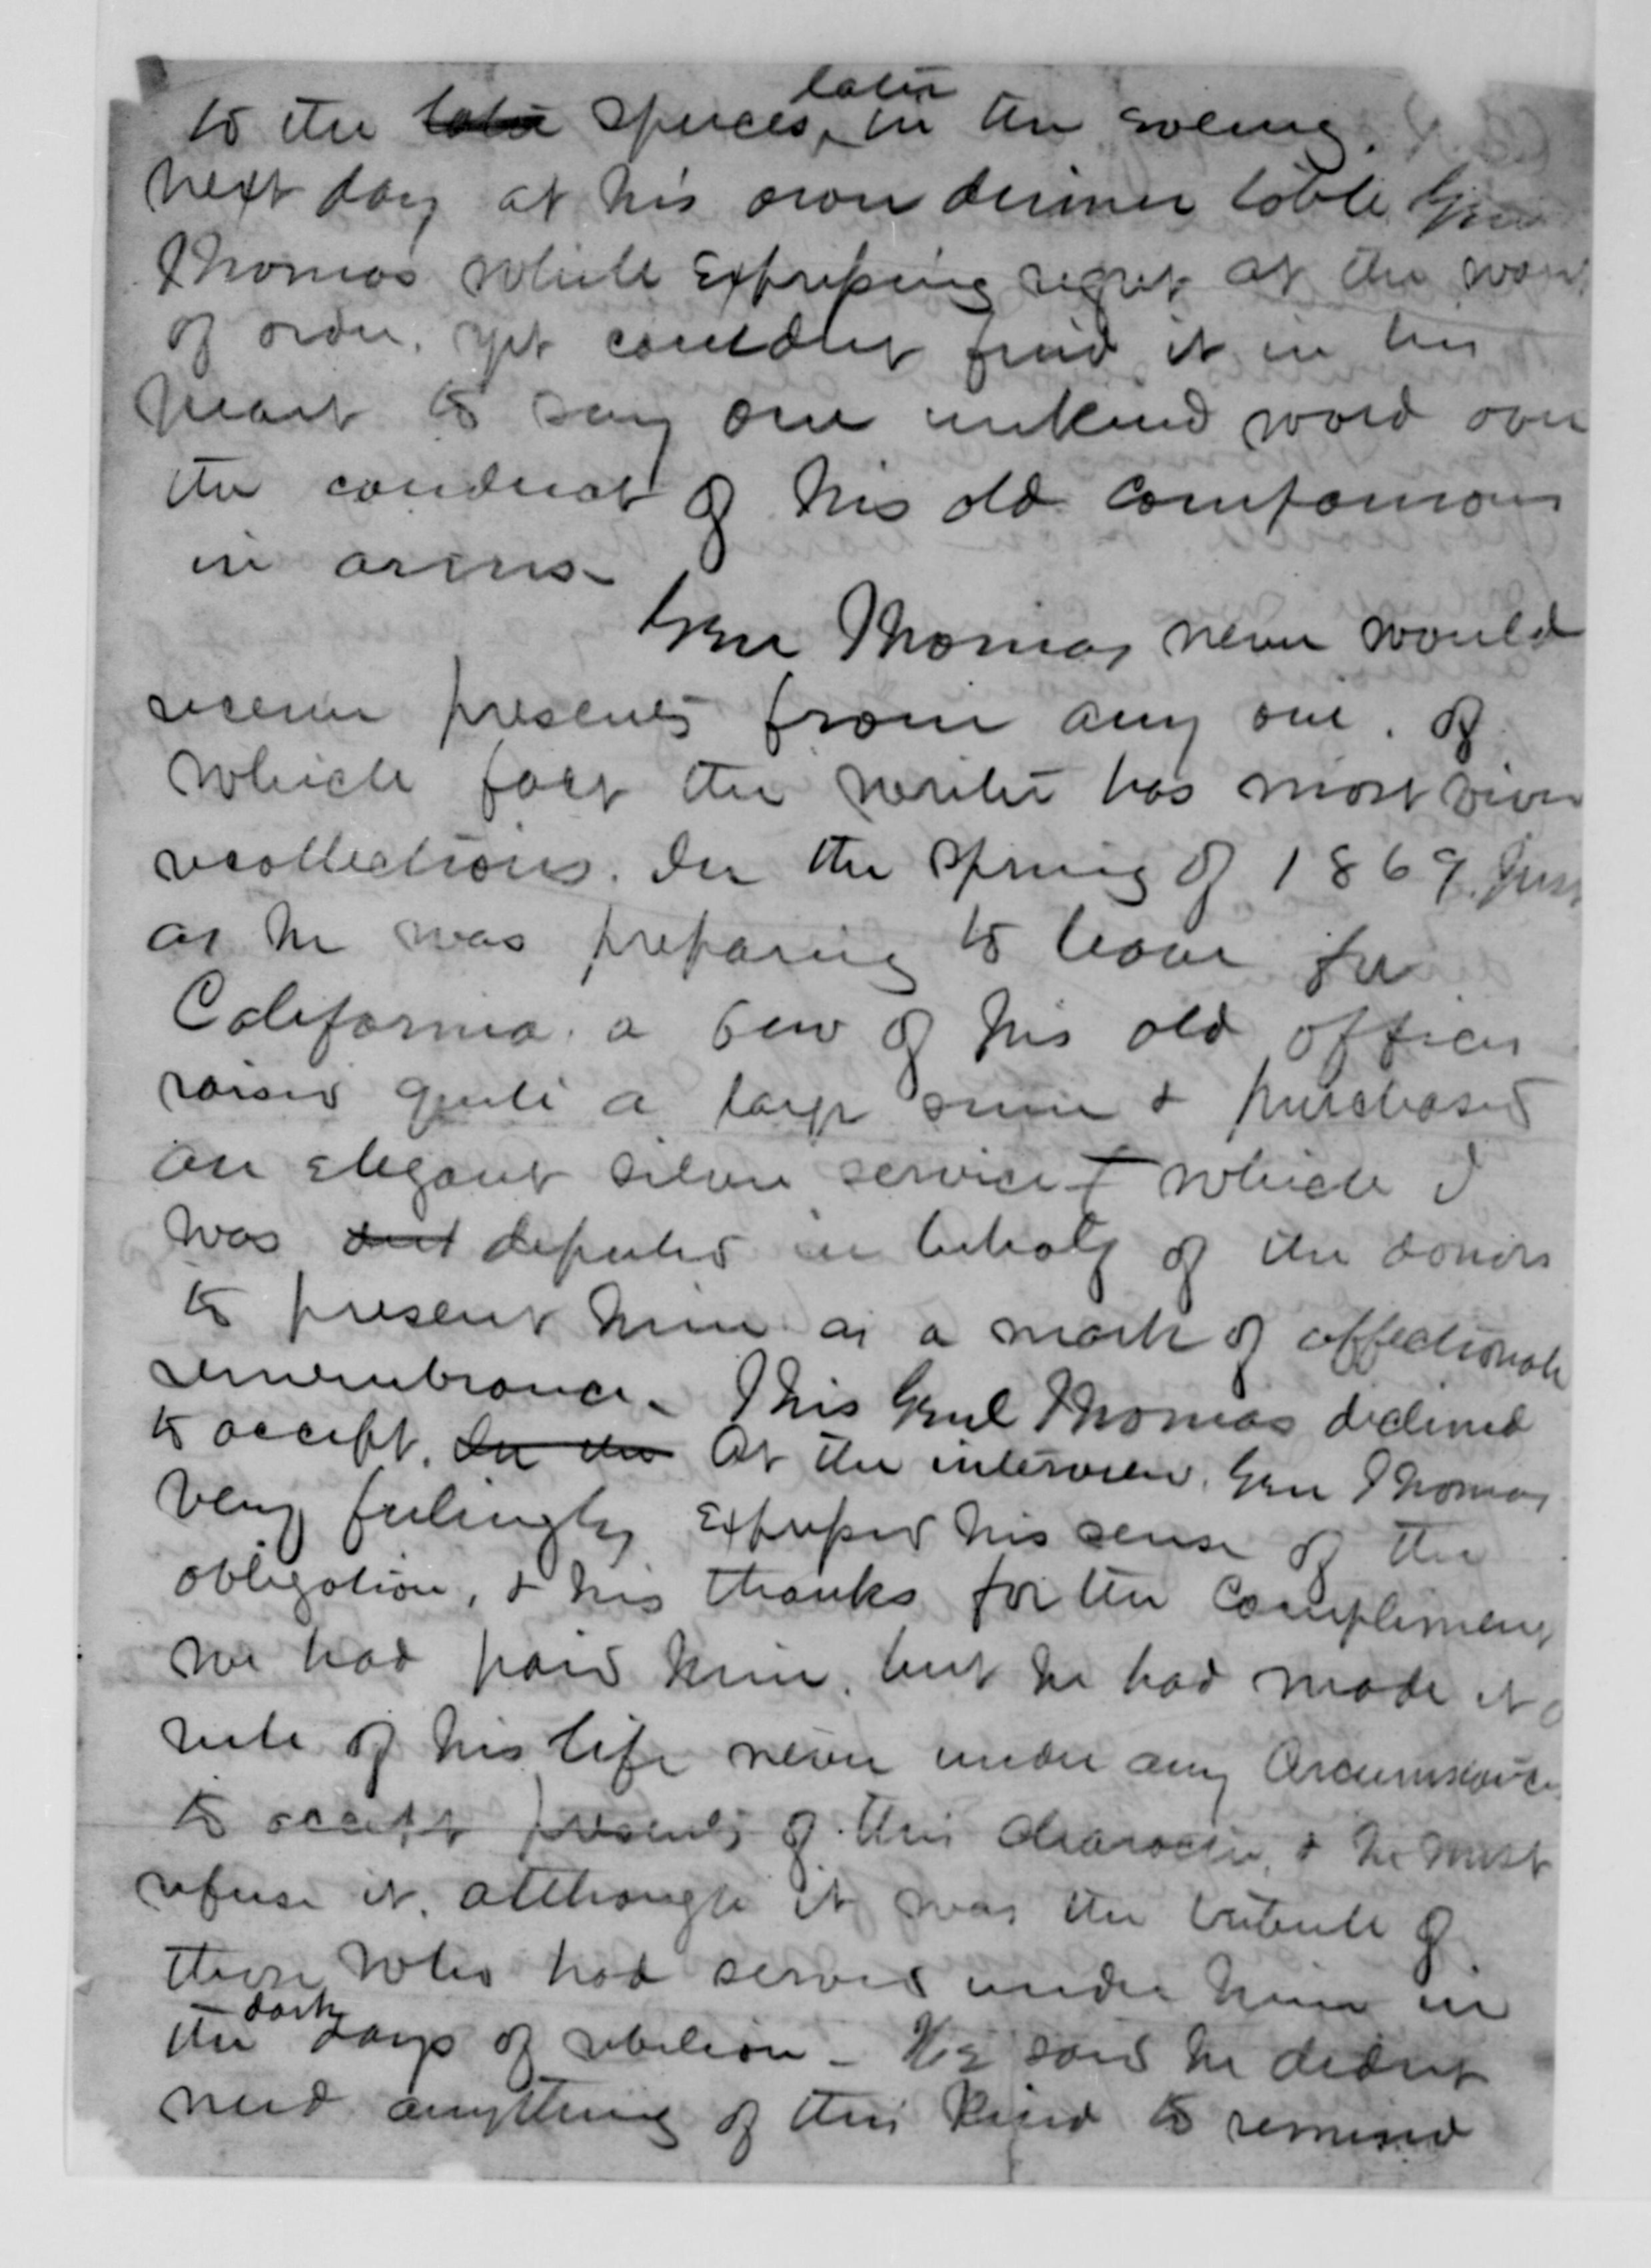 to the later speeches later in the evening.
next day at his own dinner table Genl
Thomas while expressing regret at the want
of order. yet couldnt find it in his
heart to say one unkind word over
the conduct of his old companions
in arms -
Genl Thomas never would
receive presents from any one. of
which fact the writer has most vivid
recollections. In the spring of 1869. just
as he was preparing to leave for
California. a few of his old officers
raised quite a large sum & purchased
an elegant silver service which I
was deputed in behalf of the donors
to present him as a mark of affectionate
remembrance - This Genl Thomas declined
to accept. In the At the interview. Genl Thomas
very feelingly expressed his sense of the
obligation, & his thanks for the compliment
we had paid him. but he had made it a
rule of his life never under any circumstances
to accept presents of this character, & he must
refuse it. although it was the tribute of
those who had served under him in
the dark days of rebelion - He said he didnt
need anything of this kind to remind